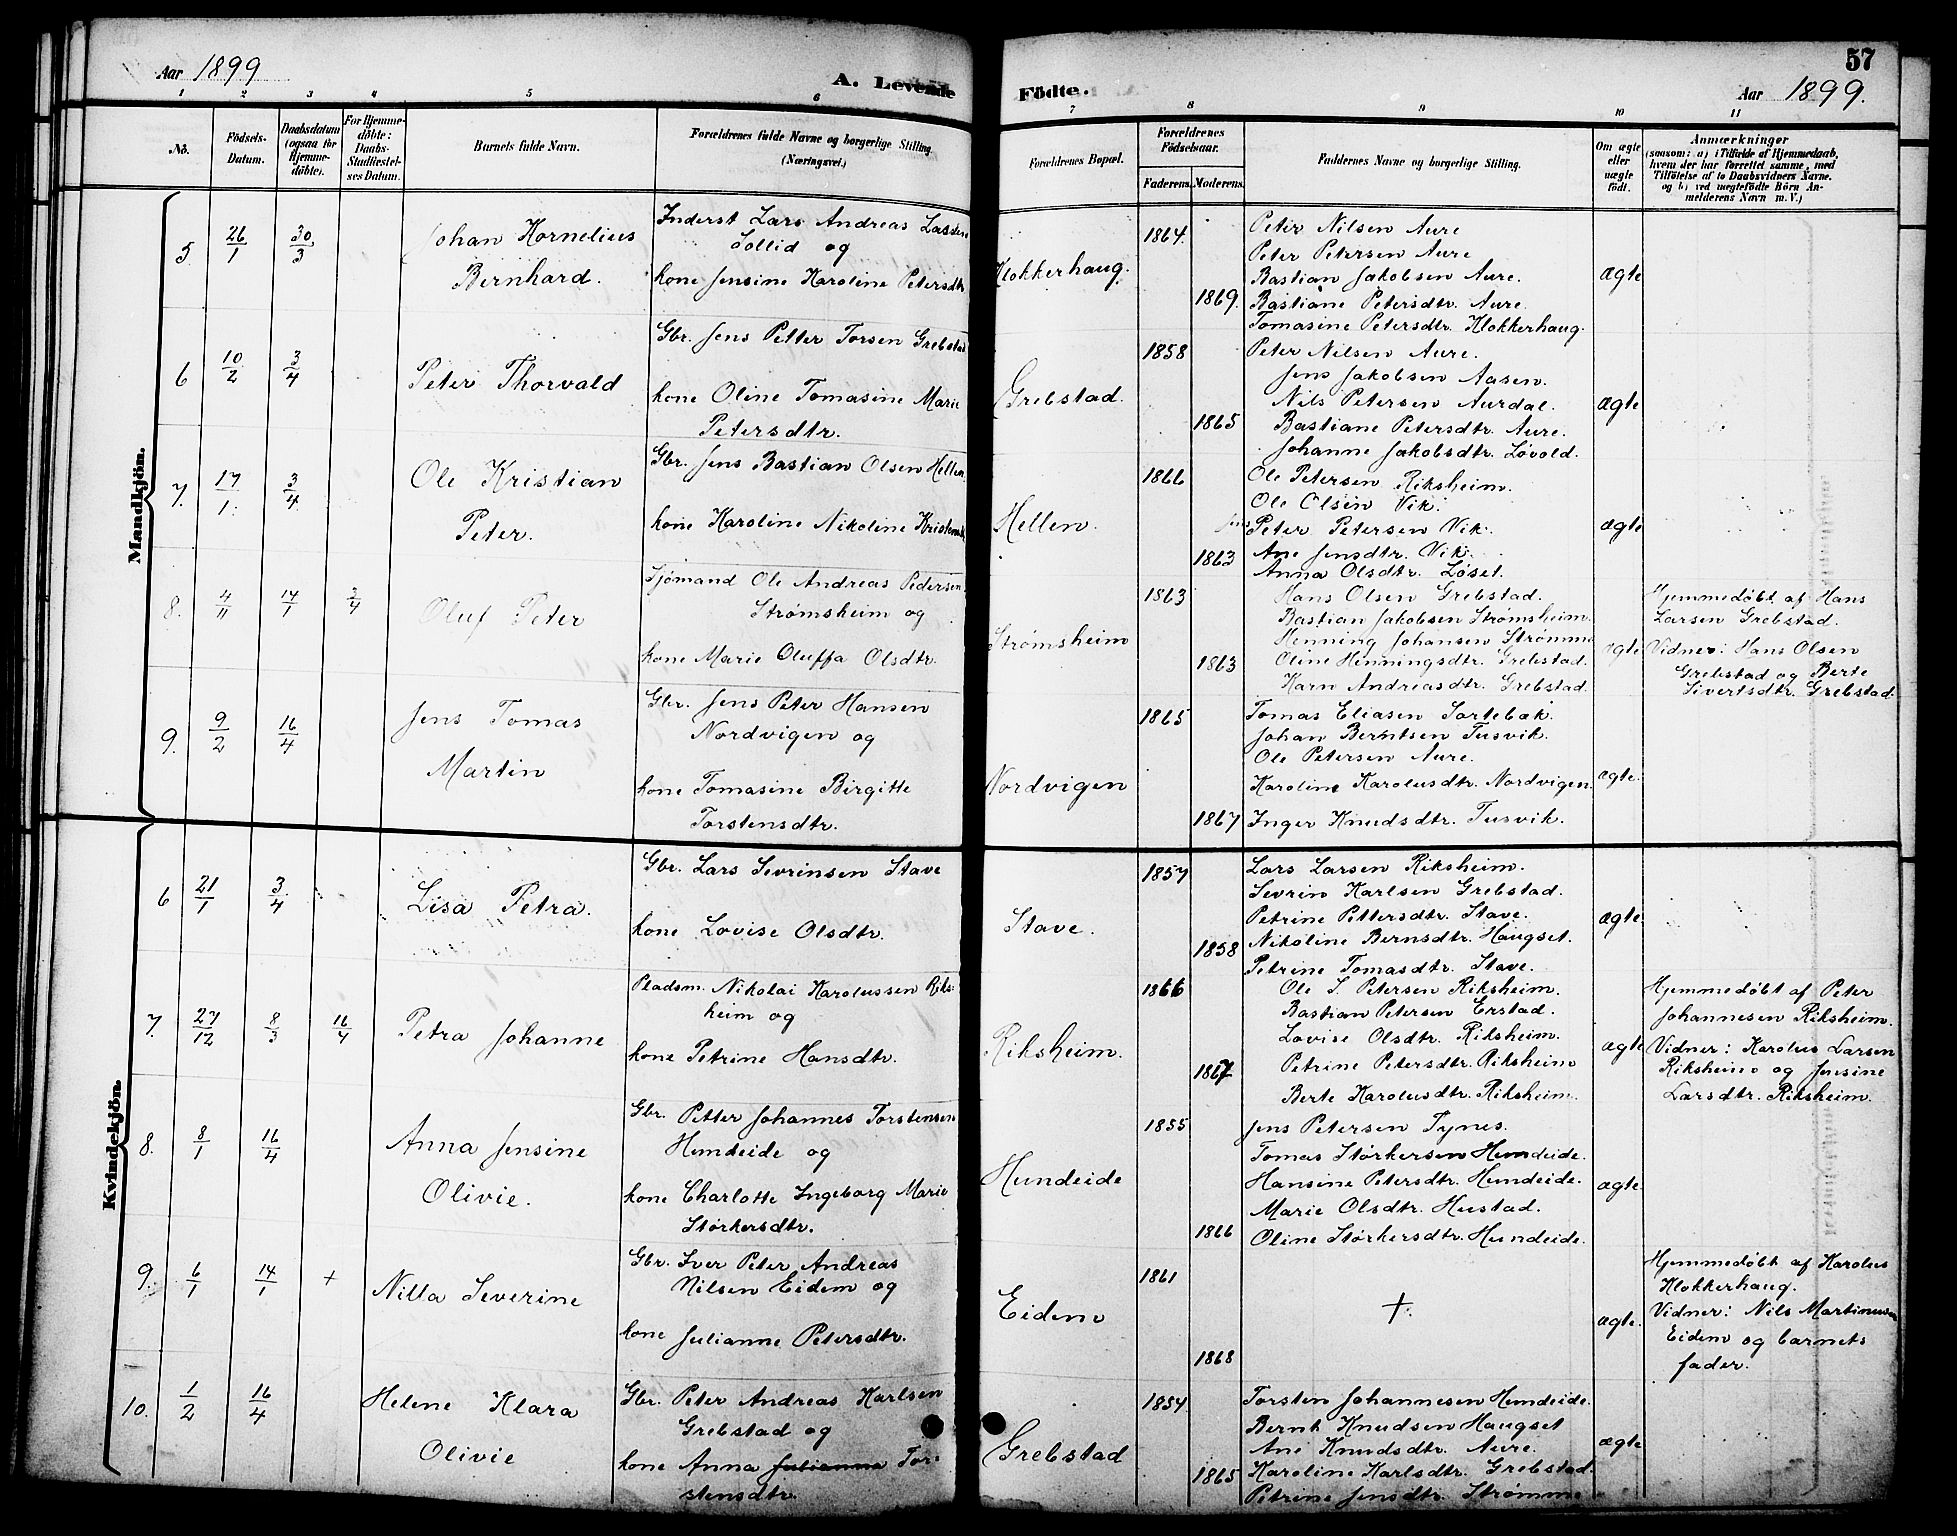 57
Aar 1899
A. Levende Födte.
Aar 1899.
1 2 3 4 5 6 7 8 9 10 11
No.
Födsels-
Datum.
Daabsdatum
(ogsaa for
Hjemme-
döbte).
For Hjemme-
döbte:
Daabs-
Stadfæstel-
ses Datum.
Barnets fulde Navn.
Forældrenes fulde Navne og borgerlige Stilling
(Næringsvei.)
Forældrenes Bopæl.
Forældrenes
Födselsaar.
Faderens. Moderens.
Faddernes Navne og borgerlige Stilling.
Om ægte
eller
uægte
födt.
Anmærkninger
(saasom: a) i Tilfælde af Hjemmedaab,
hvem der har forrettet samme, med
Tilföielse af to Daabsvidners Navne.
og b) ved uægtefödte Börn An-
melderens Navn m. V.)
Mandkjön.
5. 26/1 30/3
Johan Kornelius
Bernhard.
Inderst Lars Andreas Lassen
Sollid og
kone Jensine Karoline Petersdtr
Klokkerhaug.
1864.
1869.
Peter Nilsen Aure
Peter Petersen Aure
Bastian Jakobsen Aure.
Bastiane Petersdtr. Aure.
Tomasine Petersdtr. Klokkerhaug.
ægte
6 10/2 3/4
Peter Thorvald
Gbr. Jens Petter Torsen Grebstad
kone Oline Tomasine Marie
Petersdtr.
Grebstad.
1858
1865
Peter Nilsen Aure.
Jens Jakobsen Aasen.
Nils Petersen Aurdal.
Bastiane Petersdtr. Aure.
Johanne Jakobsdtr. Løvold.
ægte
7. 17/1. 3/4
Ole Kristian
Peter.
Gbr. Jens Bastian Olsen Hellen
kone Karoline Nikoline
Hellen.
1866
1863
Ole Petersen Riksheim.
Ole Olsen Vik.
Peter Petersen Vik.
Ane Jensdtr. Vik.
Anna Olsdtr. Løset.
ægte
8. 4/11 14/1 3/4
Oluf Peter
Sjømand Ole Andreas Pedersen
Strømsheim og
kone Marie Oluffa Olsdtr.
Strømsheim
1863
1863
Hans Olsen Grebstad.
Bastian Jakobsen Strømsheim.
Henning Johansen Strømme
Oline Henningsdtr. Grebstad.
Karn Andreasdtr. Grebstad.
ægte
Hjemmedøbt af Hans
Larsen Grebstad.
Vidner: Hans Olsen
Grebstad og Berte
Sivertsdtr. Grebstad.
9. 9/2 16/4
Jens Tomas
Martin
Gbr. Jens Peter Hansen
Nordvigen og
kone Tomasine Birgitte
Torstensdtr.
Nordvigen
1865
1867
Tomas Eliasen Sortebak.
Johan Berntsen Tusvik.
Ole Petersen Aure.
Karoline Karolusdtr. Nordvigen.
Inger Knudsdtr. Tusvik.
ægte.
Kvindekjön.
6 21/1 3/4
Lisa Petra.
Gbr. Lars Sevrinsen Stave
kone Lovise Olsdtr.
Stave.
1857
1858
Lars Larsen Riksheim.
Sevrin Karlsen Grebstad.
Petrine Pettersdtr. Stave.
Nikoline Bernsdtr. Haugset.
Petrine Tomasdtr. Stave.
ægte.
7. 27/12 8/3 16/4
Petra Johanne
Pladsm. Nikolai Karolussen Riks-
heim og
kone Petrine Hansdtr.
Riksheim.
1866
1867
Ole S. Petersen Riksheim.
Bastian Petersen Erstad.
Lovise Olsdtr. Riksheim.
Petrine Petersdtr. Riksheim
Berte Karolusdtr. Riksheim.
ægte
Hjemmedøbt af Peter
Johannesen Riksheim.
Vidner: Karolus Larsen
Riksheim og Jensine
Larsdtr. Riksheim.
8. 8/1 16/4
Anna Jensine
Olivie.
Gbr. Petter Johannes Torstensen
Hundeide og
kone Charlotte Ingeborg Marie
Størkersdtr.
Hundeide
1855
1866
Jens Petersen Tynes.
Tomas Størkersen Hundeide.
Hansine Petersdtr. Hundeide.
Marie Olsdtr. Hustad.
Oline Størkersdtr. Hundeide.
ægte
9. 6/1 14/1 +
Nilla Severine
Gbr. Iver Peter Andreas
Nilsen Eidem og
kone Julianne Petersdtr.
Eidem
1861
1868
+
ægte.
Hjemmedøbt af Karolus
Klokkerhaug.
Vidner: Nils Martinusen
Eidem og barnets
fader.
10. 1/2 16/4
Helene Klara
Olivie
Gbr. Peter Andreas Karlsen
Grebstad og
kone Anna Julianna Tor-
stensdtr.
Grebstad
1854
1865
Torsten Johannesen Hundeide.
Bernt Knudsen Haugset
Ane Knudsdtr. Aure.
Karoline Karlsdtr. Grebstad.
Petrine Jensdtr. Strømme
ægte